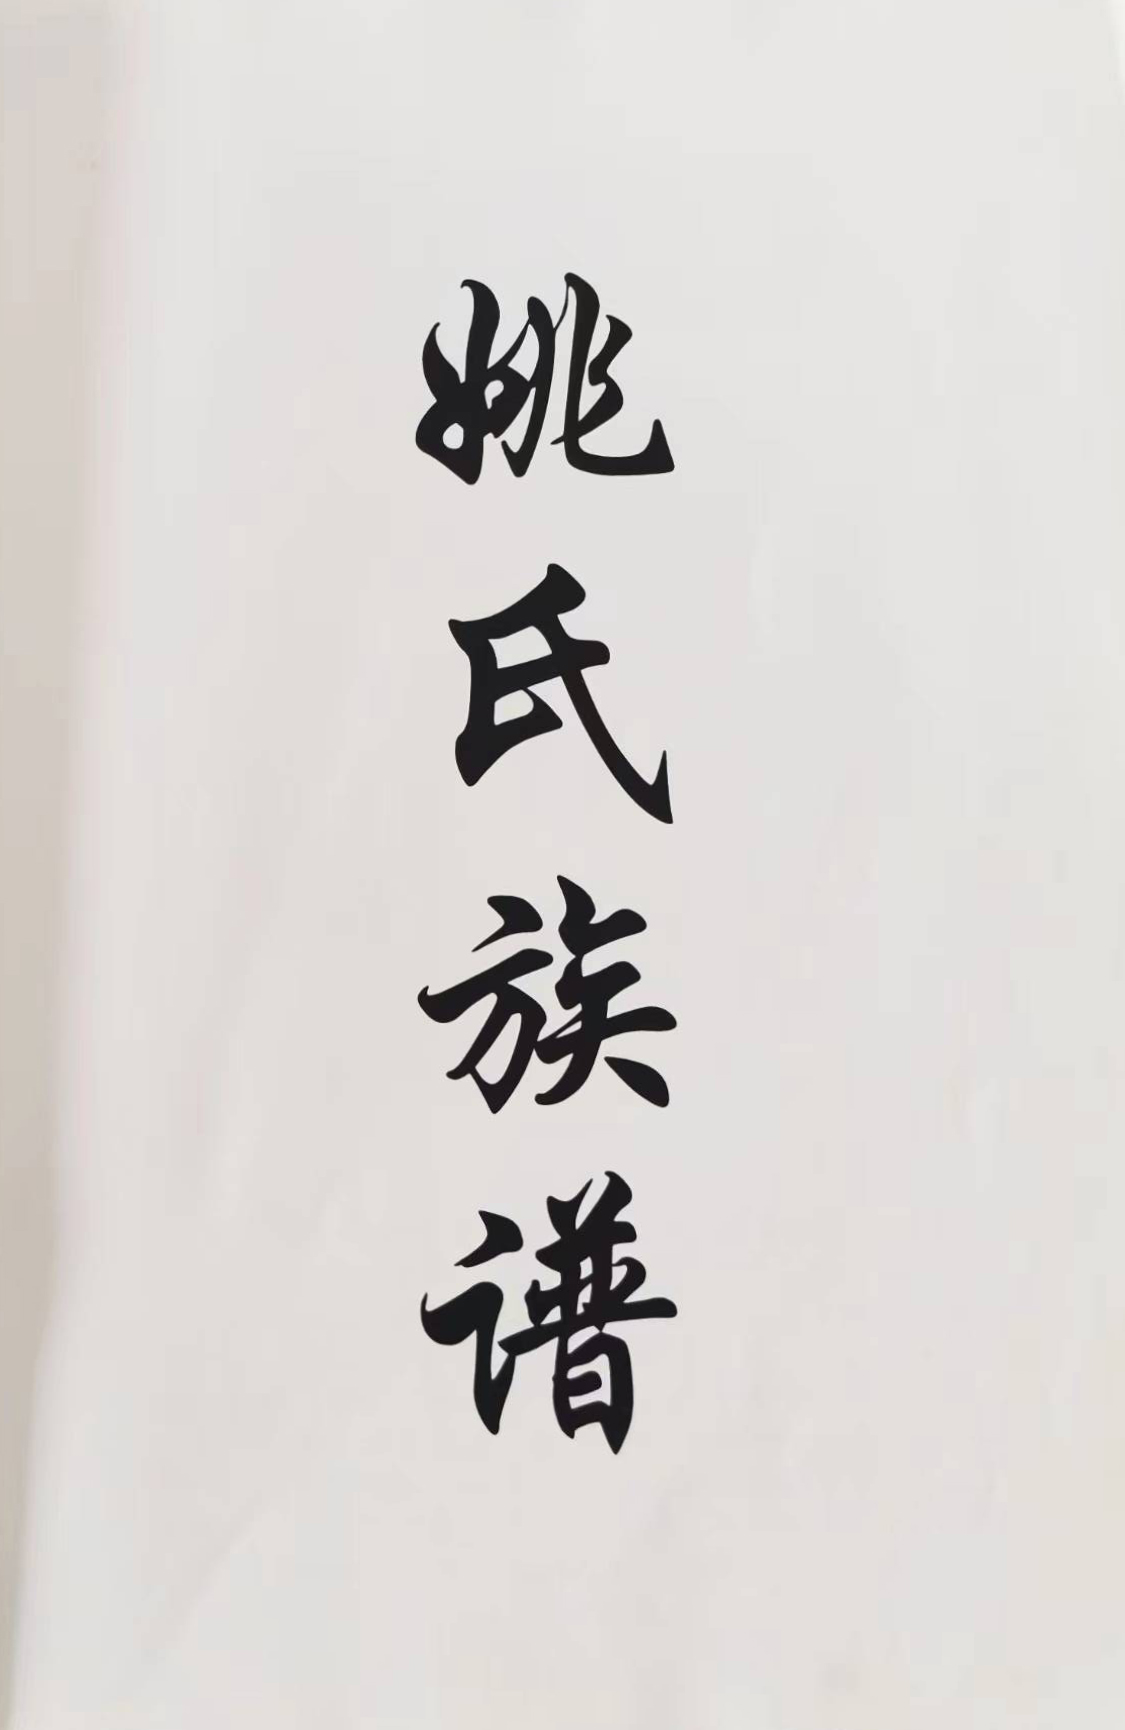 姚氏族谱